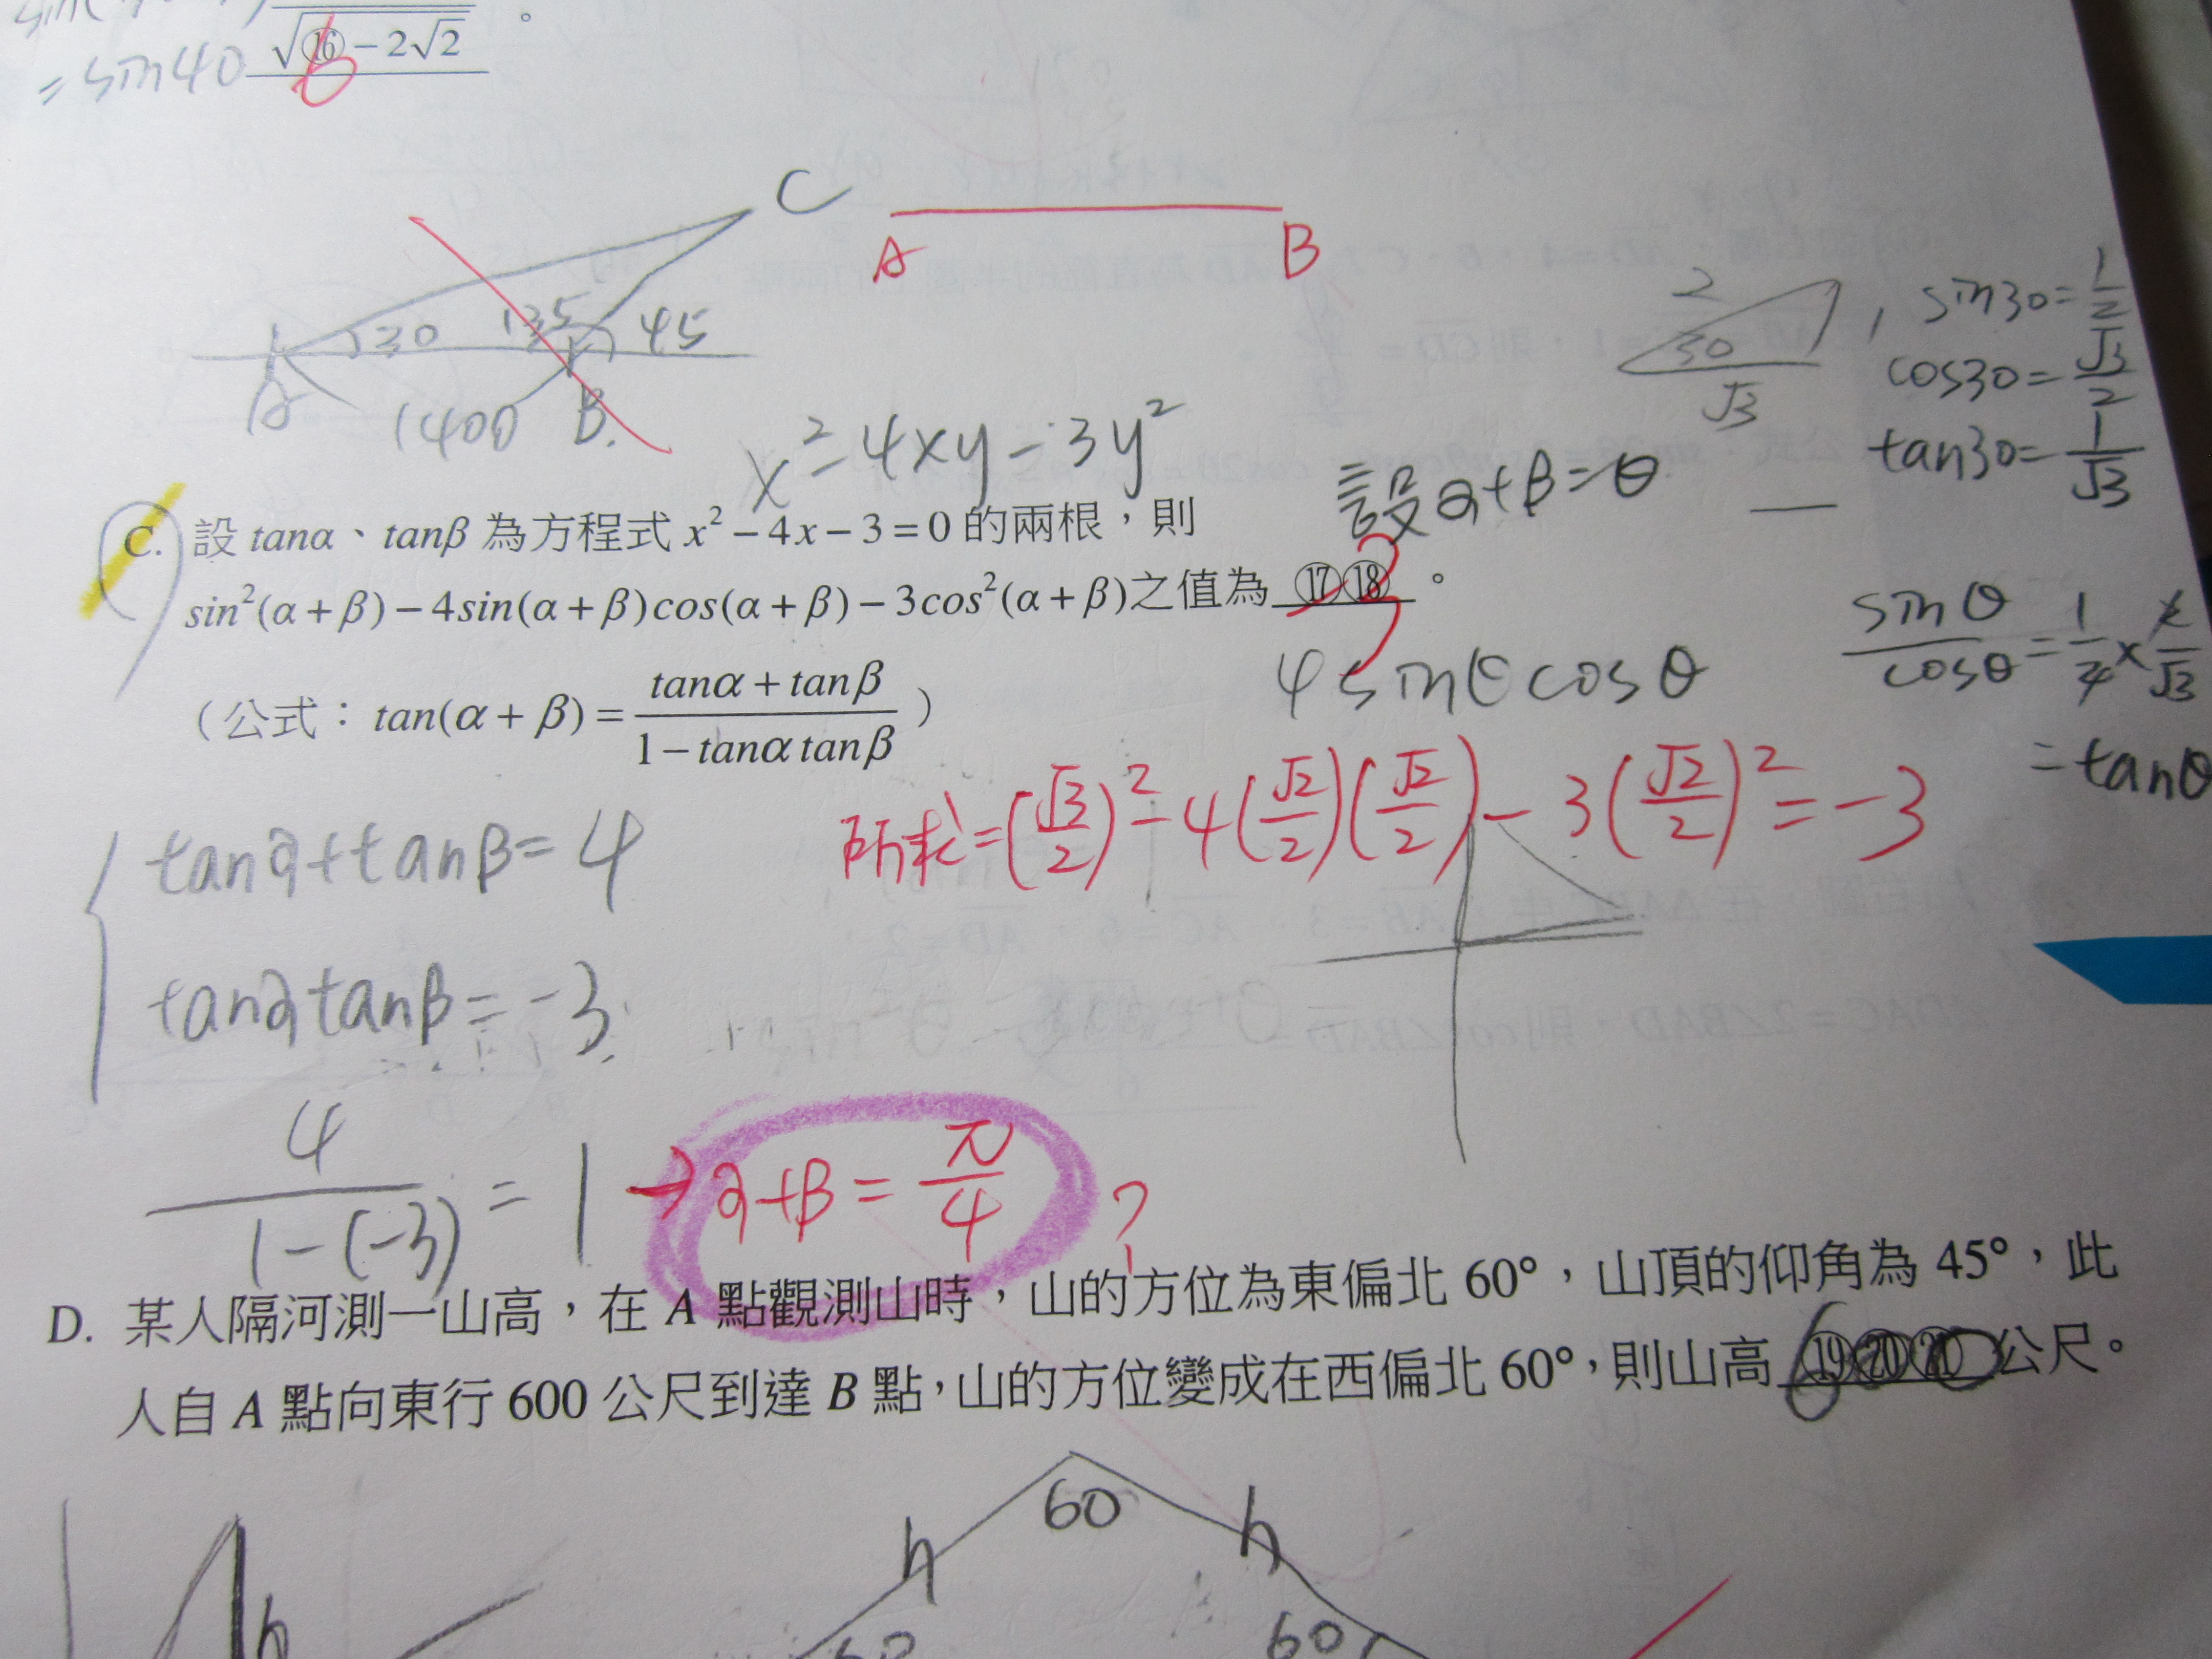 = sin40 √⑯-2√2 。
6
C
A B
30 135 45
A 1400 B.
2
30 1
√3
sin30= 1/2
cos30= √3/2
tan30= 1/√3
x²=4xy-3y²
設α+β=θ
C. 設 tanα、tanβ 為方程式 x²-4x-3=0 的兩根,則
sin²(α+β)-4sin(α+β)cos(α+β)-3cos²(α+β)之值為 ⑰⑱ 。
-3
(公式: tan(α+β)= tanα+tanβ / 1-tanα tanβ )
4sinθcosθ
sinθ/cosθ = 1/4 × 2/√3
= tanθ
所求=(√3/2)²-4(√2/2)(√2/2)-3(√2/2)²=-3
tanα+tanβ=4
tanαtanβ=-3
4/1-(-3) = 1 → α+β= π/4 ?
D. 某人隔河測一山高,在 A 點觀測山時,山的方位為東偏北 60°,山頂的仰角為 45°,此
人自 A 點向東行 600 公尺到達 B 點,山的方位變成在西偏北 60°,則山高 ⑲⑳㉑ 公尺。
600
60
h h
h 60 60